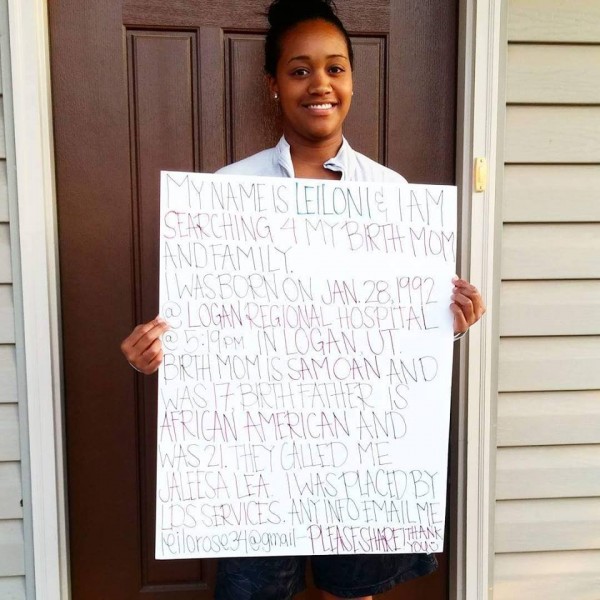 MY NAME IS LEILONI & I AM
SEARCHING 4 MY BIRTH MOM
AND FAMILY.
I WAS BORN ON JAN. 28, 1992
@ LOGAN REGIONAL HOSPITAL
@ 5:19PM IN LOGAN, UT.
BIRTH MOM IS SAMOAN AND
WAS 17. BIRTH FATHER IS
AFRICAN AMERICAN AND
WAS 21. THEY CALLED ME
JALEESA LEA. I WAS PLACED BY
LDS SERVICES. ANY INFO EMAIL ME
leilorose34@gmail- PLEASE SHARE! THANK YOU!